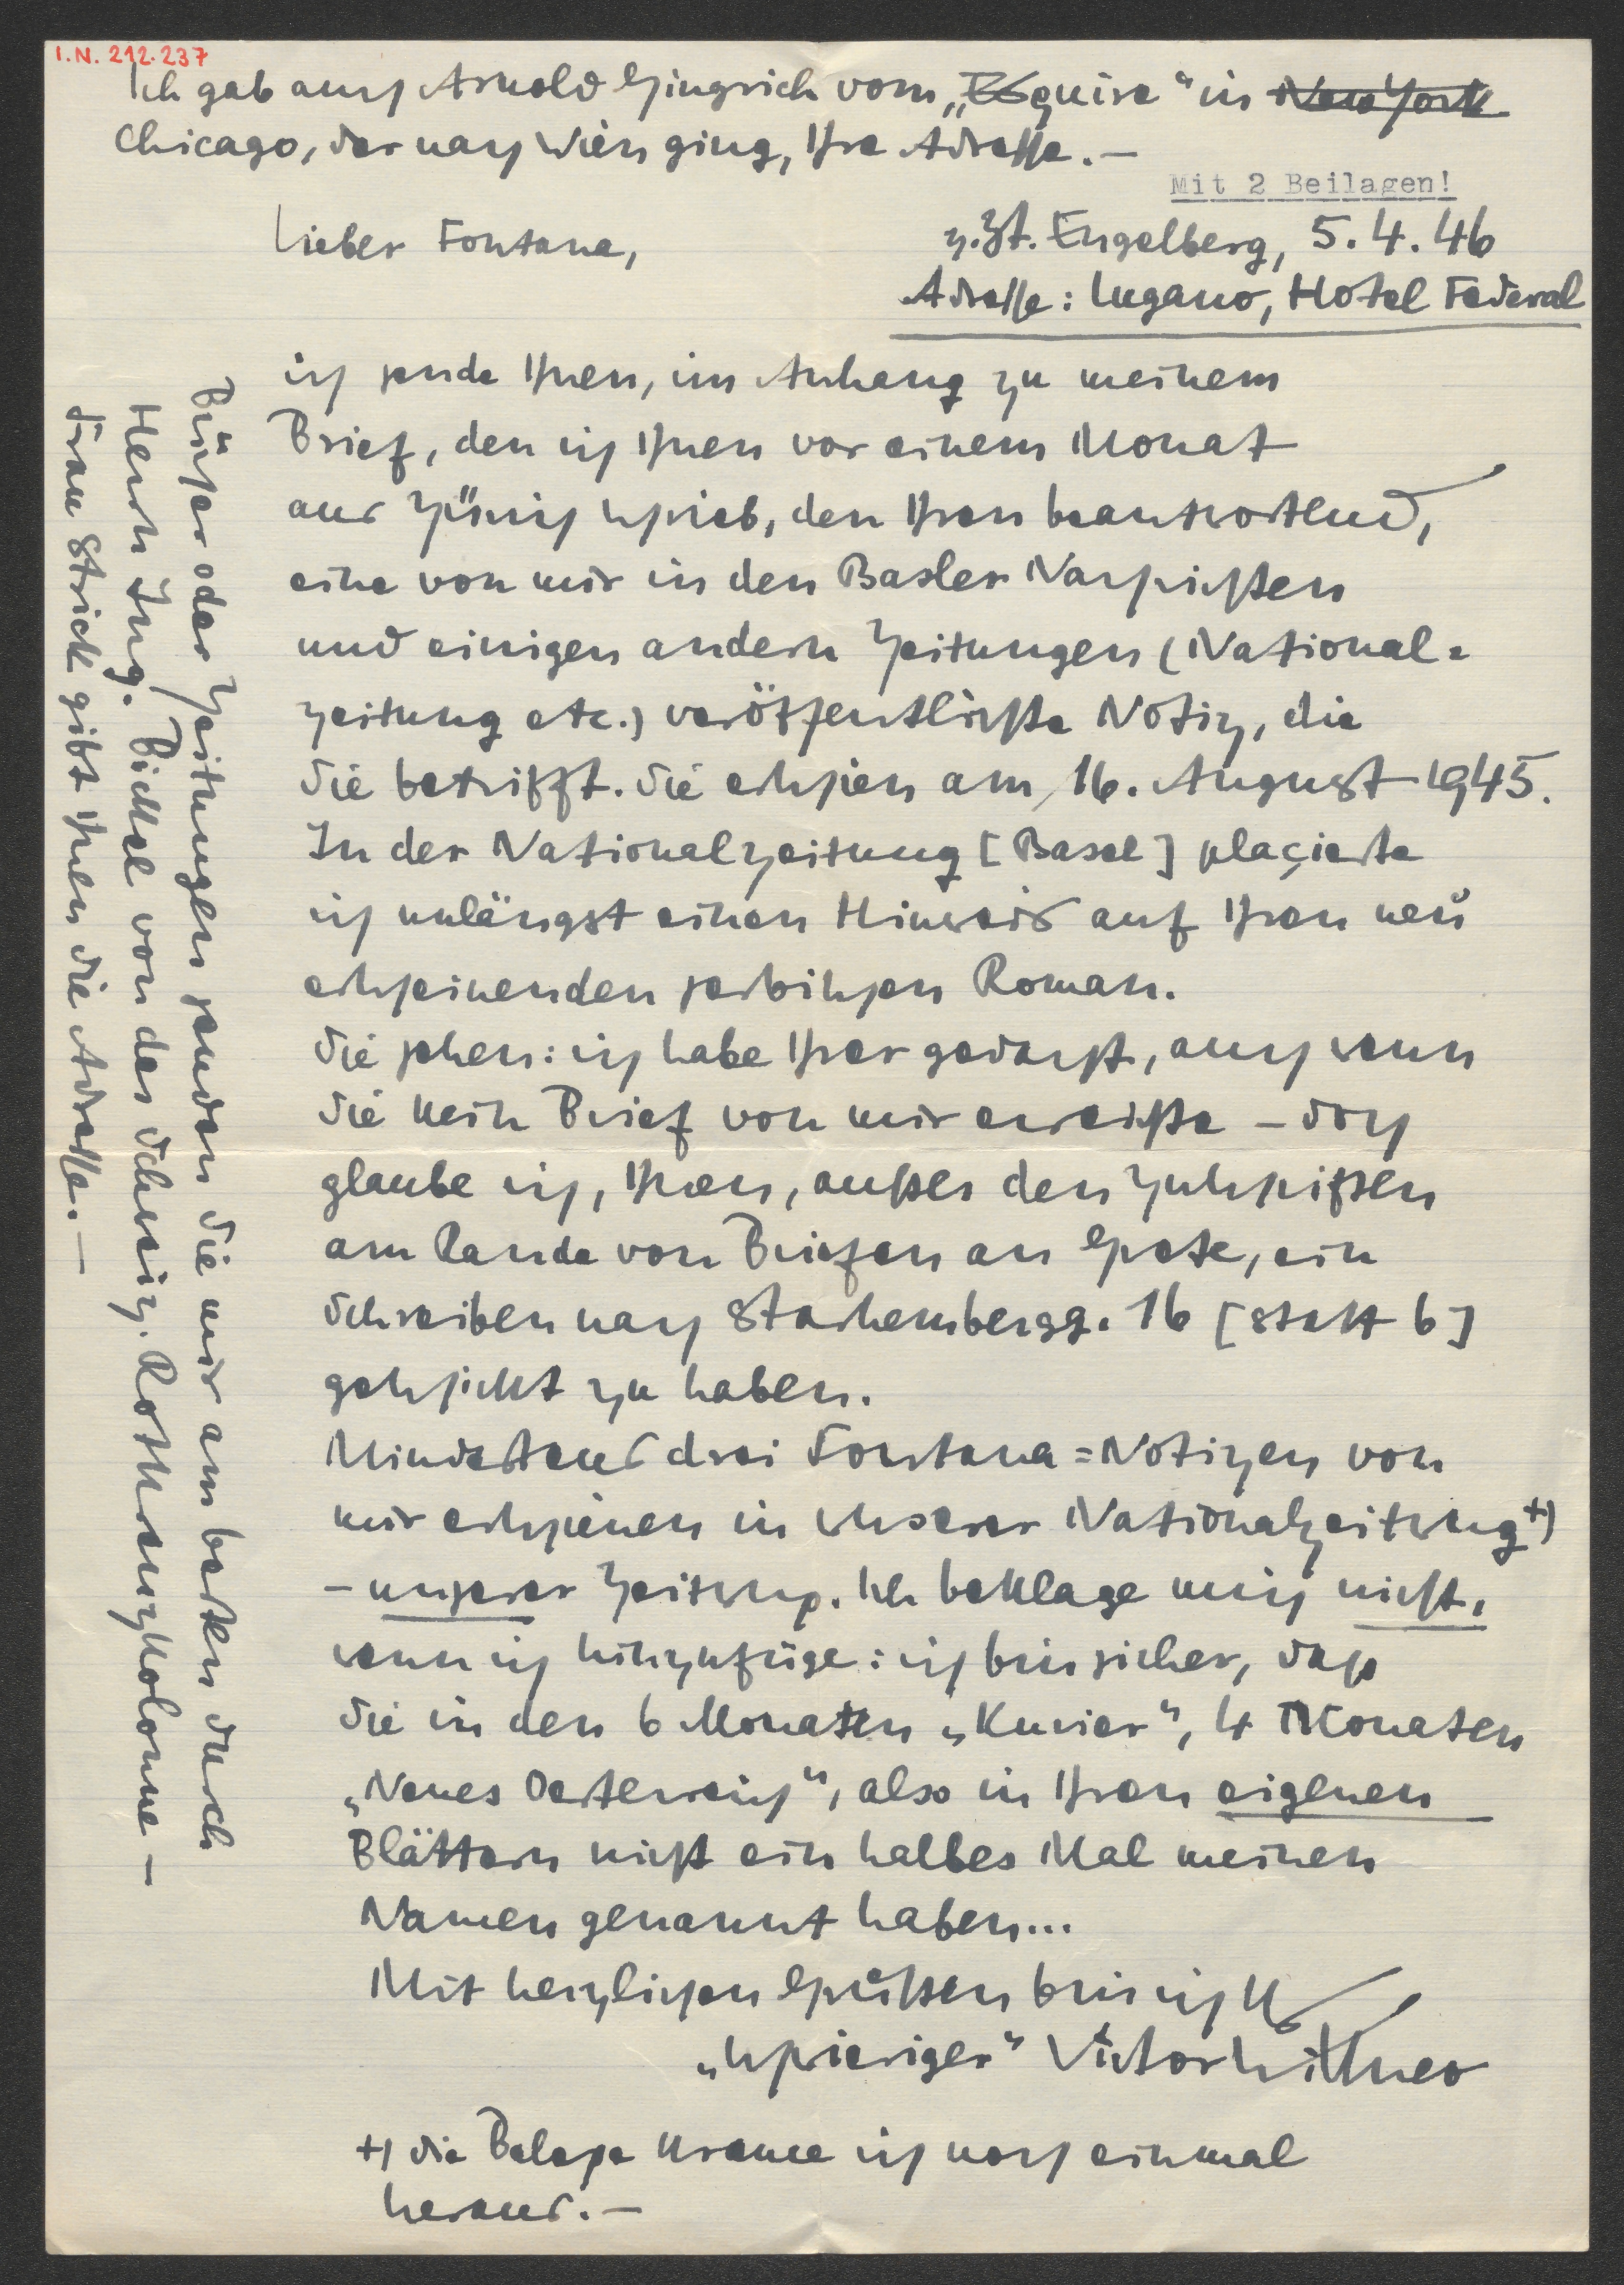 I.N. 212.237
Ich gab auch Arnold Gingrich vom „Esquire“ in New York
Chicago, der nach Wien ging, Ihre Adresse. —
Mit 2 Beilagen!
Lieber Fontana,
z. Zt. Engelberg, 5. 4. 46
Adresse: Lugano, Hotel Federal
ich sende Ihnen, im Anhang zu meinem
Brief, den ich Ihnen vor einem Monat
aus Zürich schrieb, den Ihren beantwortend,
eine von mir in den Basler Nachrichten
und einigen andern Zeitungen (National-
zeitung etc.) veröffentlichte Notiz, die
Sie betrifft. Sie erschien am 16. August 1945.
In der Nationalzeitung [Basel] plaçierte
ich unlängst einen Hinweis auf Ihren neu
erscheinenden serbischen Roman.
Sie sehen: ich habe Ihrer gedacht, auch wenn
Sie kein Brief von mir erreichte – doch
glaube ich, Ihnen, außer den Zuschriften
am Rande von Briefen an Grete, ein
Schreiben nach Starhembergg. 16 [statt 6]
geschickt zu haben.
Mindestens drei Fontana=Notizen von
mir erschienen in unserer Nationalzeitung +)
– unserer Zeitung. Ich beklage mich nicht,
wenn ich hinzufüge: ich bin sicher, dass
Sie in den 6 Monaten „Kurier“, 4 Monaten
„Neues Oesterreich“, also in Ihren eigenen
Blättern nicht ein halbes Mal meinen
Namen genannt haben...
Mit herzlichen Grüßen bin ich Ihr
„schwieriger“ Victor Wittner
+) die Belege krame ich noch einmal
heraus. —
Bücher oder Zeitungen senden Sie mir am besten durch
Herrn Ing. Bickel von der Schweiz. Rotkreuzkolonne —
Frau Strick gibt Ihnen die Adresse. —